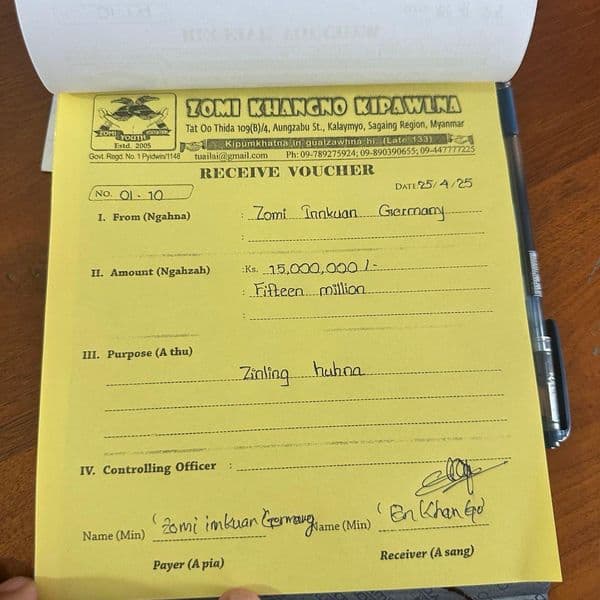 ZOMI YOUTH ASSOCIATION
Estd. 2005
Govt. Regd. No. 1 Pyidwin/1148
ZOMI KHANGNO KIPAWLNA
Tat Oo Thida 109(B)/4, Aungzabu St., Kalaymyo, Sagaing Region, Myanmar
Kipumkhatna in gualzawhna hi. (Late 133)
tuailai@gmail.com Ph: 09-789275924; 09-890390655; 09-447777225
RECEIVE VOUCHER
No. 01-10
DATE 25/4/25
I. From (Ngahna) : Zomi Innkuan Germany
:
II. Amount (Ngahzah) :Ks. 15,000,000/-
: Fifteen million
:
III. Purpose (A thu)
Zinling huhna
IV. Controlling Officer :
Name (Min) Zomi innkuan Germany Name (Min) En Khan Go
Payer (A pia) Receiver (A sang)